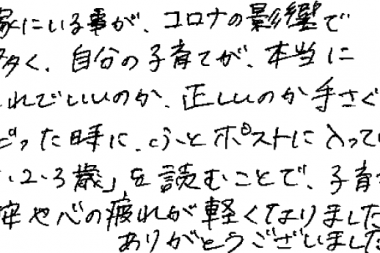 家にいる事が、コロナの影響で
多く、自分の子育てが、本当に
れでいいのか、正しいのか手さぐ
だった時に、ふとポストに入ってい
・2・3歳」を読むことで、子育
安や心の疲れが軽くなりました
ありがとうございました